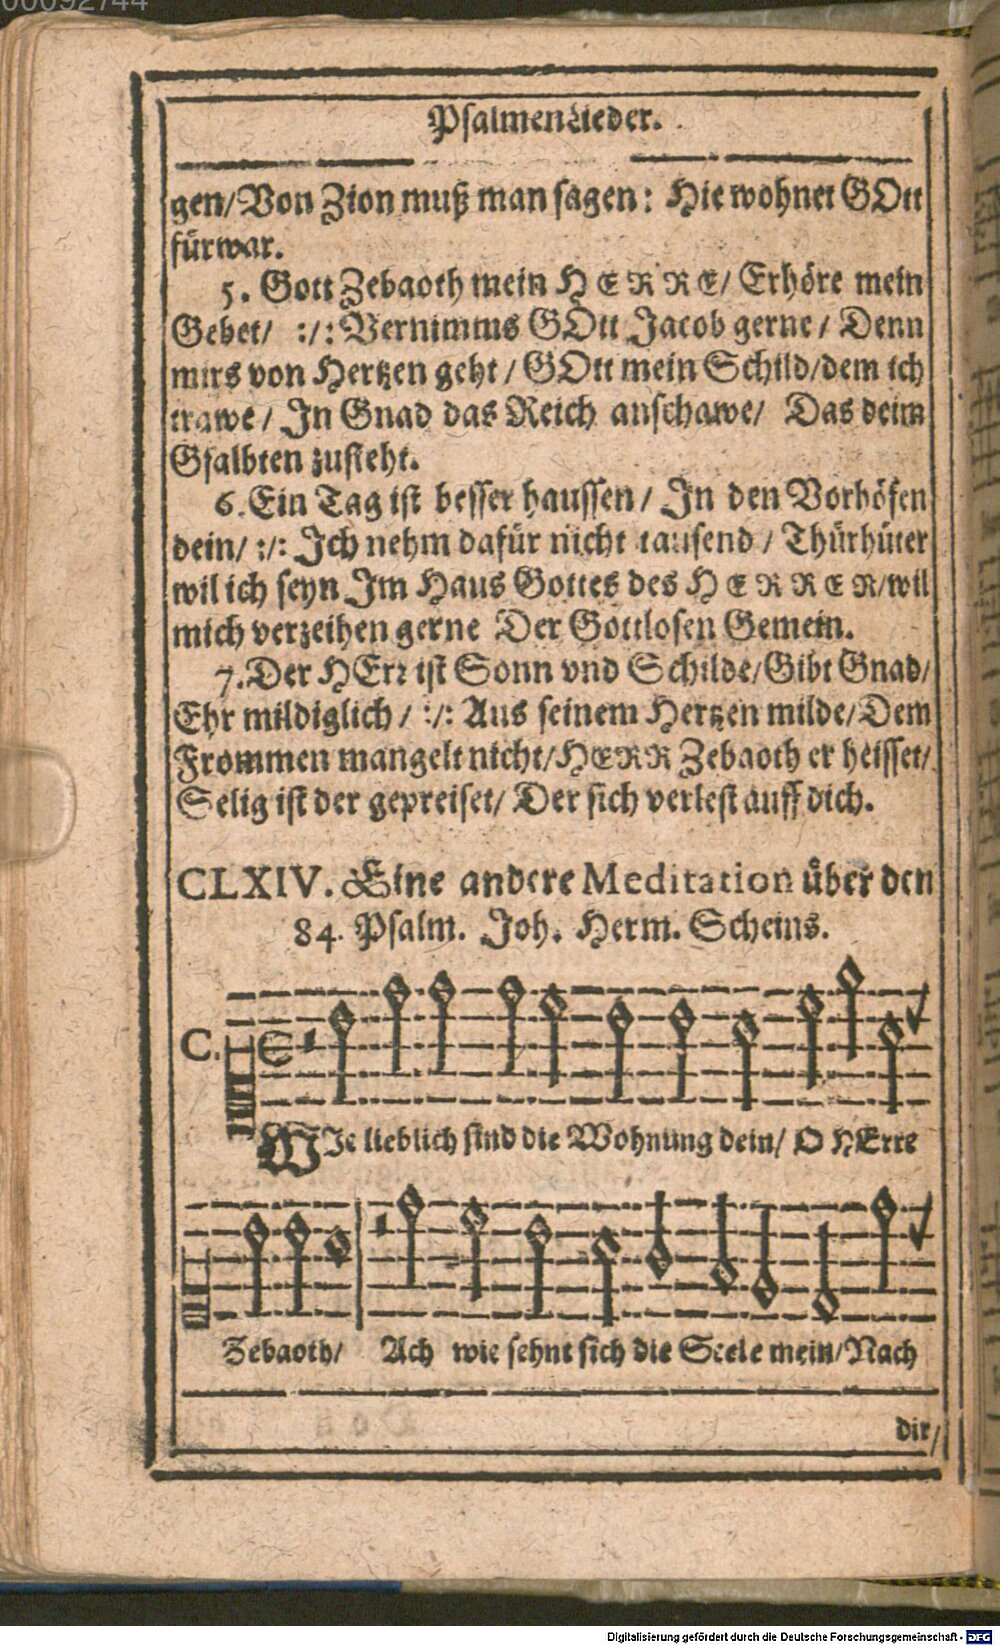 00092744
PsalmenLieder.
gen/Von Zion muß man sagen: Hie wohnet GOtt
fürwar.
5. Gott Zebaoth mein HERRE/ Erhöre mein
Gebet/ :/: Vernimms GOtt Jacob gerne/ Denn
mirs von Hertzen geht/ GOtt mein Schild/dem ich
trawe/ In Gnad das Reich anschawe/ Das deim
Gsalbten zusteht.
6. Ein Tag ist besser haussen/ In den Vorhöfen
dein/ :/: Ich nehm dafür nicht tausend/ Thürhüter
wil ich seyn Im Haus Gottes des HERREN/wil
mich verzeihen gerne Der Gottlosen Gemein.
7. Der HErr ist Sonn vnd Schilde/Gibt Gnad/
Ehr mildiglich/ :/: Aus seinem Hertzen milde/Dem
Frommen mangelt nicht/HERR Zebaoth er heisset/
Selig ist der gepreiset/ Der sich verlest auff dich.
CLXIV. Eine andere Meditation über den
84. Psalm. Joh. Herm. Scheins.
C.
WIe lieblich sind die Wohnung dein/ O HErre
Zebaoth/ Ach wie sehnt sich die Seele mein/Nach
dir/
Digitalisierung gefördert durch die Deutsche Forschungsgemeinschaft - DFG